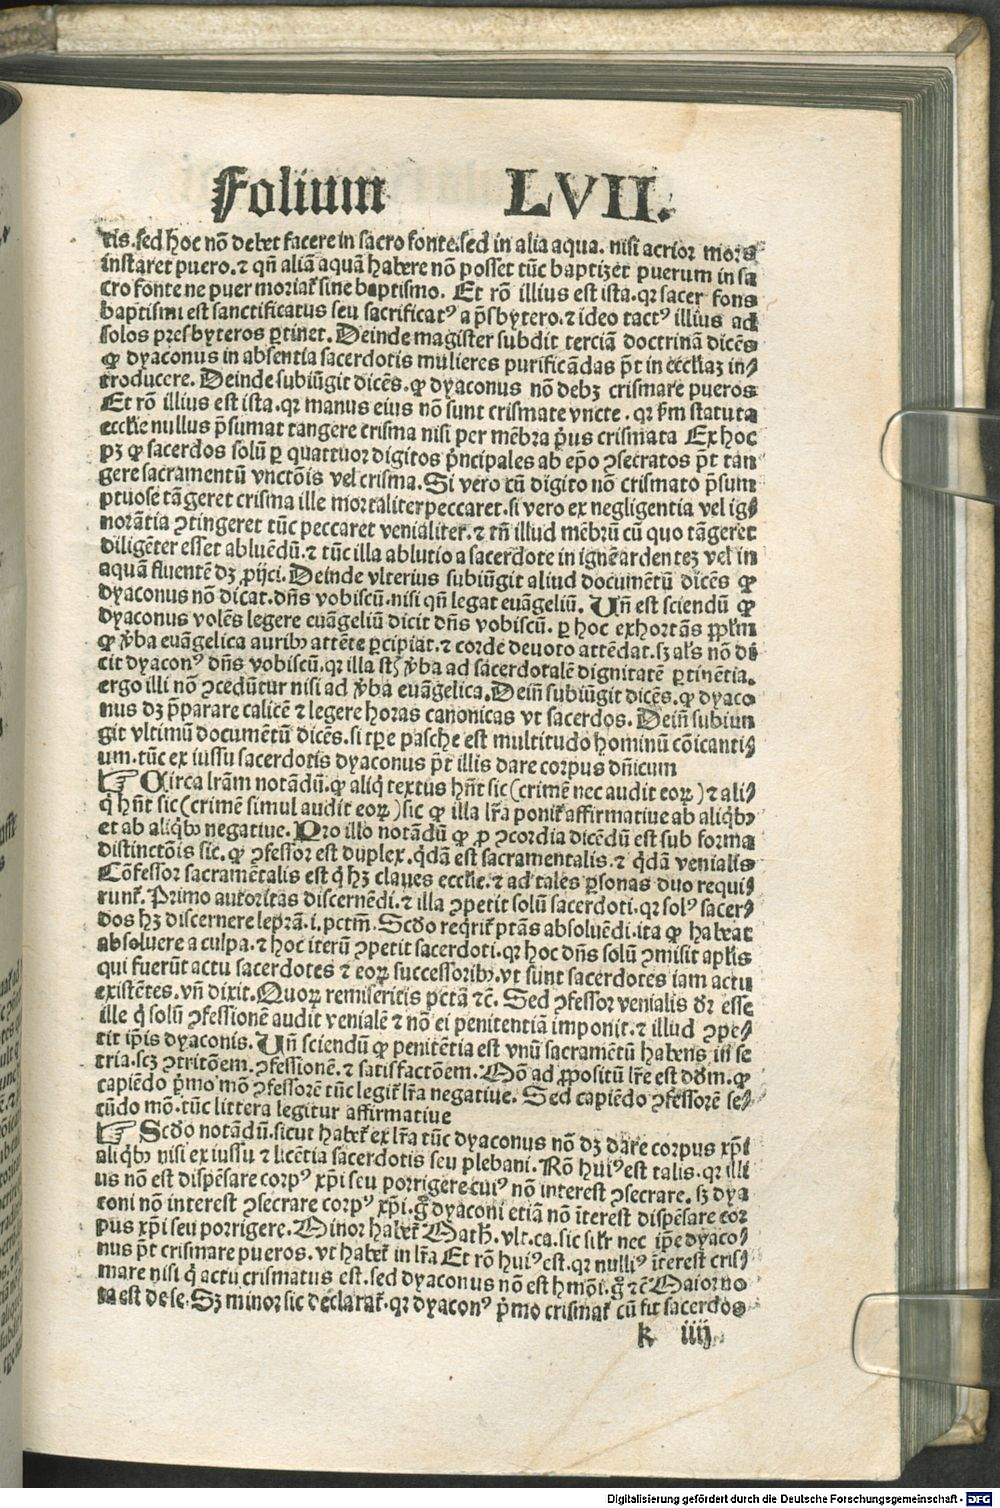 Folium LVII.
tis. sed hoc nō debet facere in sacro fonte. sed in alia aqua. nisi acrior mors
instaret puero. ⁊ qñ aliā aquā habere nō posset tūc baptizet puerum in sa
cro fonte ne puer moriať sine baptismo. Et rō illius est ista. qꝛ sacer fons
baptismi est sanctificatus seu sacrificatꝰ a p̄sbytero. ⁊ ideo tactꝰ illius ad
solos presbyteros ꝑtinet. Deinde magister subdit terciā doctrinā dicēs
ꝙ dyaconus in absentia sacerdotis mulieres purificādas p̄t in eccliaꝫ in⸗
troducere. Deinde subiūgit dicēs. ꝙ dyaconus nō debꝫ crismare pueros
Et rō illius est ista. qꝛ manus eius nō sunt crismate vncte. qꝛ p̄m statuta
ecclie nullus p̄sumat tangere crisma nisi per mēbra p̄us crismata Ex hoc
pꝫ ꝙ sacerdos solū ꝑ quattuor digitos p̄ncipales ab ep̄o ꝯsecratos p̄t tan
gere sacramentū vnctōis vel crisma. Si vero cū digito nō crismato p̄sum
ptuose tāgeret crisma ille mortaliter peccaret. si vero ex negligentia vel ig⸗
norātia ꝯtingeret tūc peccaret venialiter. ⁊ tñ illud mēbrū cū quo tāgeret
diligēter esset abluēdū. ⁊ tūc illa ablutio a sacerdote in ignē ardenteꝫ vel in
aquā fluentē dꝫ ꝓijci. Deinde vlterius subiūgit aliud documētū dicēs ꝙ
dyaconus nō dicat. dñs vobiscū. nisi qñ legat euāgeliū. Vñ est sciendū ꝙ
dyaconus volēs legere euāgeliū dicit dñs vobiscū. ꝑ hoc exhortās ppl̄m
ꝙ v̄ba euāgelica auribꝰ attēte ꝑcipiat. ⁊ corde deuoto attēdat. sꝫ al̄s nō di
cit dyaconꝰ dñs vobiscū. qꝛ illa st̄ v̄ba ad sacerdotalē dignitatē ꝑtinētia.
ergo illi nō ꝯcedūtur nisi ad v̄ba euāgelica. Dein̄ subiūgit dicēs. ꝙ dyaco
nus dꝫ p̄parare calicē ⁊ legere horas canonicas vt sacerdos. Dein̄ subiun
git vltimū documētū dicēs. si tꝑe pasche est multitudo hominū cōicanti⸗
um. tūc ex iussu sacerdotis dyaconus p̄t illis dare corpus dñicum
☞ Circa lr̄am notādū. ꝙ aliqͥ textus hn̄t sic (crimē nec audit eoꝝ) ⁊ ali⸗
qͥ hn̄t sic (crimē simul audit eoꝝ) sic ꝙ illa lr̄a poniť affirmatiue ab aliqͥbꝰ
et ab aliqͥbꝰ negatiue. Pro illo notādū ꝙ ꝓ ꝯcordia dicēdū est sub forma
distinctōis sic. ꝙ ꝯfessor est duplex. qͥdā est sacramentalis. ⁊ qͥdā venialis
Cōfessor sacramētalis est qͥ hꝫ claues ecclie. ⁊ ad tales ꝑsonas duo requi⸗
runť. Primo autoritas discernēdi. ⁊ illa ꝯpetit solū sacerdoti. qꝛ solꝰ sacer⸗
dos hꝫ discernere leprā. i. pctm̄. Scdo reqͥriť ptās absoluēdi. ita ꝙ habeat
absoluere a culpa. ⁊ hoc iterū ꝯpetit sacerdoti. qꝛ hoc dñs solū ꝯmisit apl̄is
qui fuerūt actu sacerdotes ⁊ eoꝝ successoribꝰ. vt sunt sacerdotes iam actu
existētes. vñ dixit. Quoꝝ remiseritis pctā ⁊c̄. Sed ꝯfessor venialis dr̄ esse
ille qͥ solū ꝯfessionē audit venialē ⁊ nō ei penitentiā imponit. ⁊ illud ꝯpe⸗
tit ip̄is dyaconis. Vñ sciendū ꝙ penitētia est vnū sacramētū habens in se
tria. scꝫ ꝯtritōem. ꝯfessionē. ⁊ satisfactōem. Mō ad ꝓpositū lr̄e est dōm. ꝙ
capiēdo p̄mo mō ꝯfessorē tūc legiť lr̄a negatiue. Sed capiēdo ꝯfessorē se⸗
cūdo mō. tūc littera legitur affirmatiue
☞ Scdo notādū. sicut habeť ex lr̄a tūc dyaconus nō dꝫ dare corpus xp̄i
aliqͥbꝰ nisi ex iussu ⁊ licētia sacerdotis seu plebani. Rō huiꝰ est talis. qꝛ illi
us nō est dispēsare corpꝰ xp̄i seu porrigere cuiꝰ nō interest ꝯsecrare. sꝫ dya
coni nō interest ꝯsecrare corpꝰ xp̄i. gͦ dyaconi etiā nō īterest dispēsare cor
pus xp̄i seu porrigere. Minor habeť Math. vlt. ca. sic sil̄r nec ip̄e dyaco⸗
nus p̄t crismare pueros. vt habeť in lr̄a Et rō huiꝰ est. qꝛ nulliꝰ īterest cris⸗
mare nisi qͥ actu crismatus est. sed dyaconus nō est hmōi. gͦ ⁊c̄ Maior no
ta est de se. Sꝫ minor sic declarať. qꝛ dyaconꝰ p̄mo crismať cū fit sacerdos
k iiij
Digitalisierung gefördert durch die Deutsche Forschungsgemeinschaft - DFG